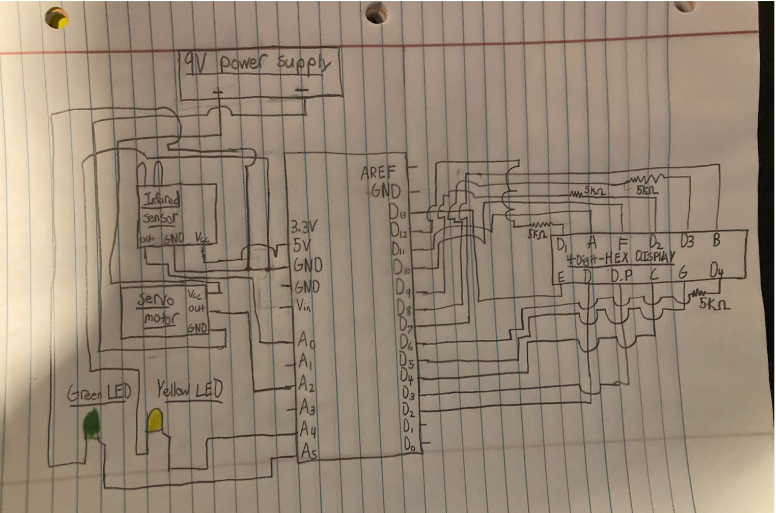 9V power supply
+ −
Infared
sensor
out GND Vcc
Servo
motor
Vcc
out
GND
Green LED
Yellow LED
3.3V
5V
GND
GND
Vin
A0
A1
A2
A3
A4
A5
AREF
GND
D13
D12
D11
D10
D9
D8
D7
D6
D5
D4
D3
D2
D1
D0
5KΩ
5KΩ
5KΩ
D1 A F D2 D3 B
4-Digit-HEX DISPLAY
E D D.P C G D4
5KΩ